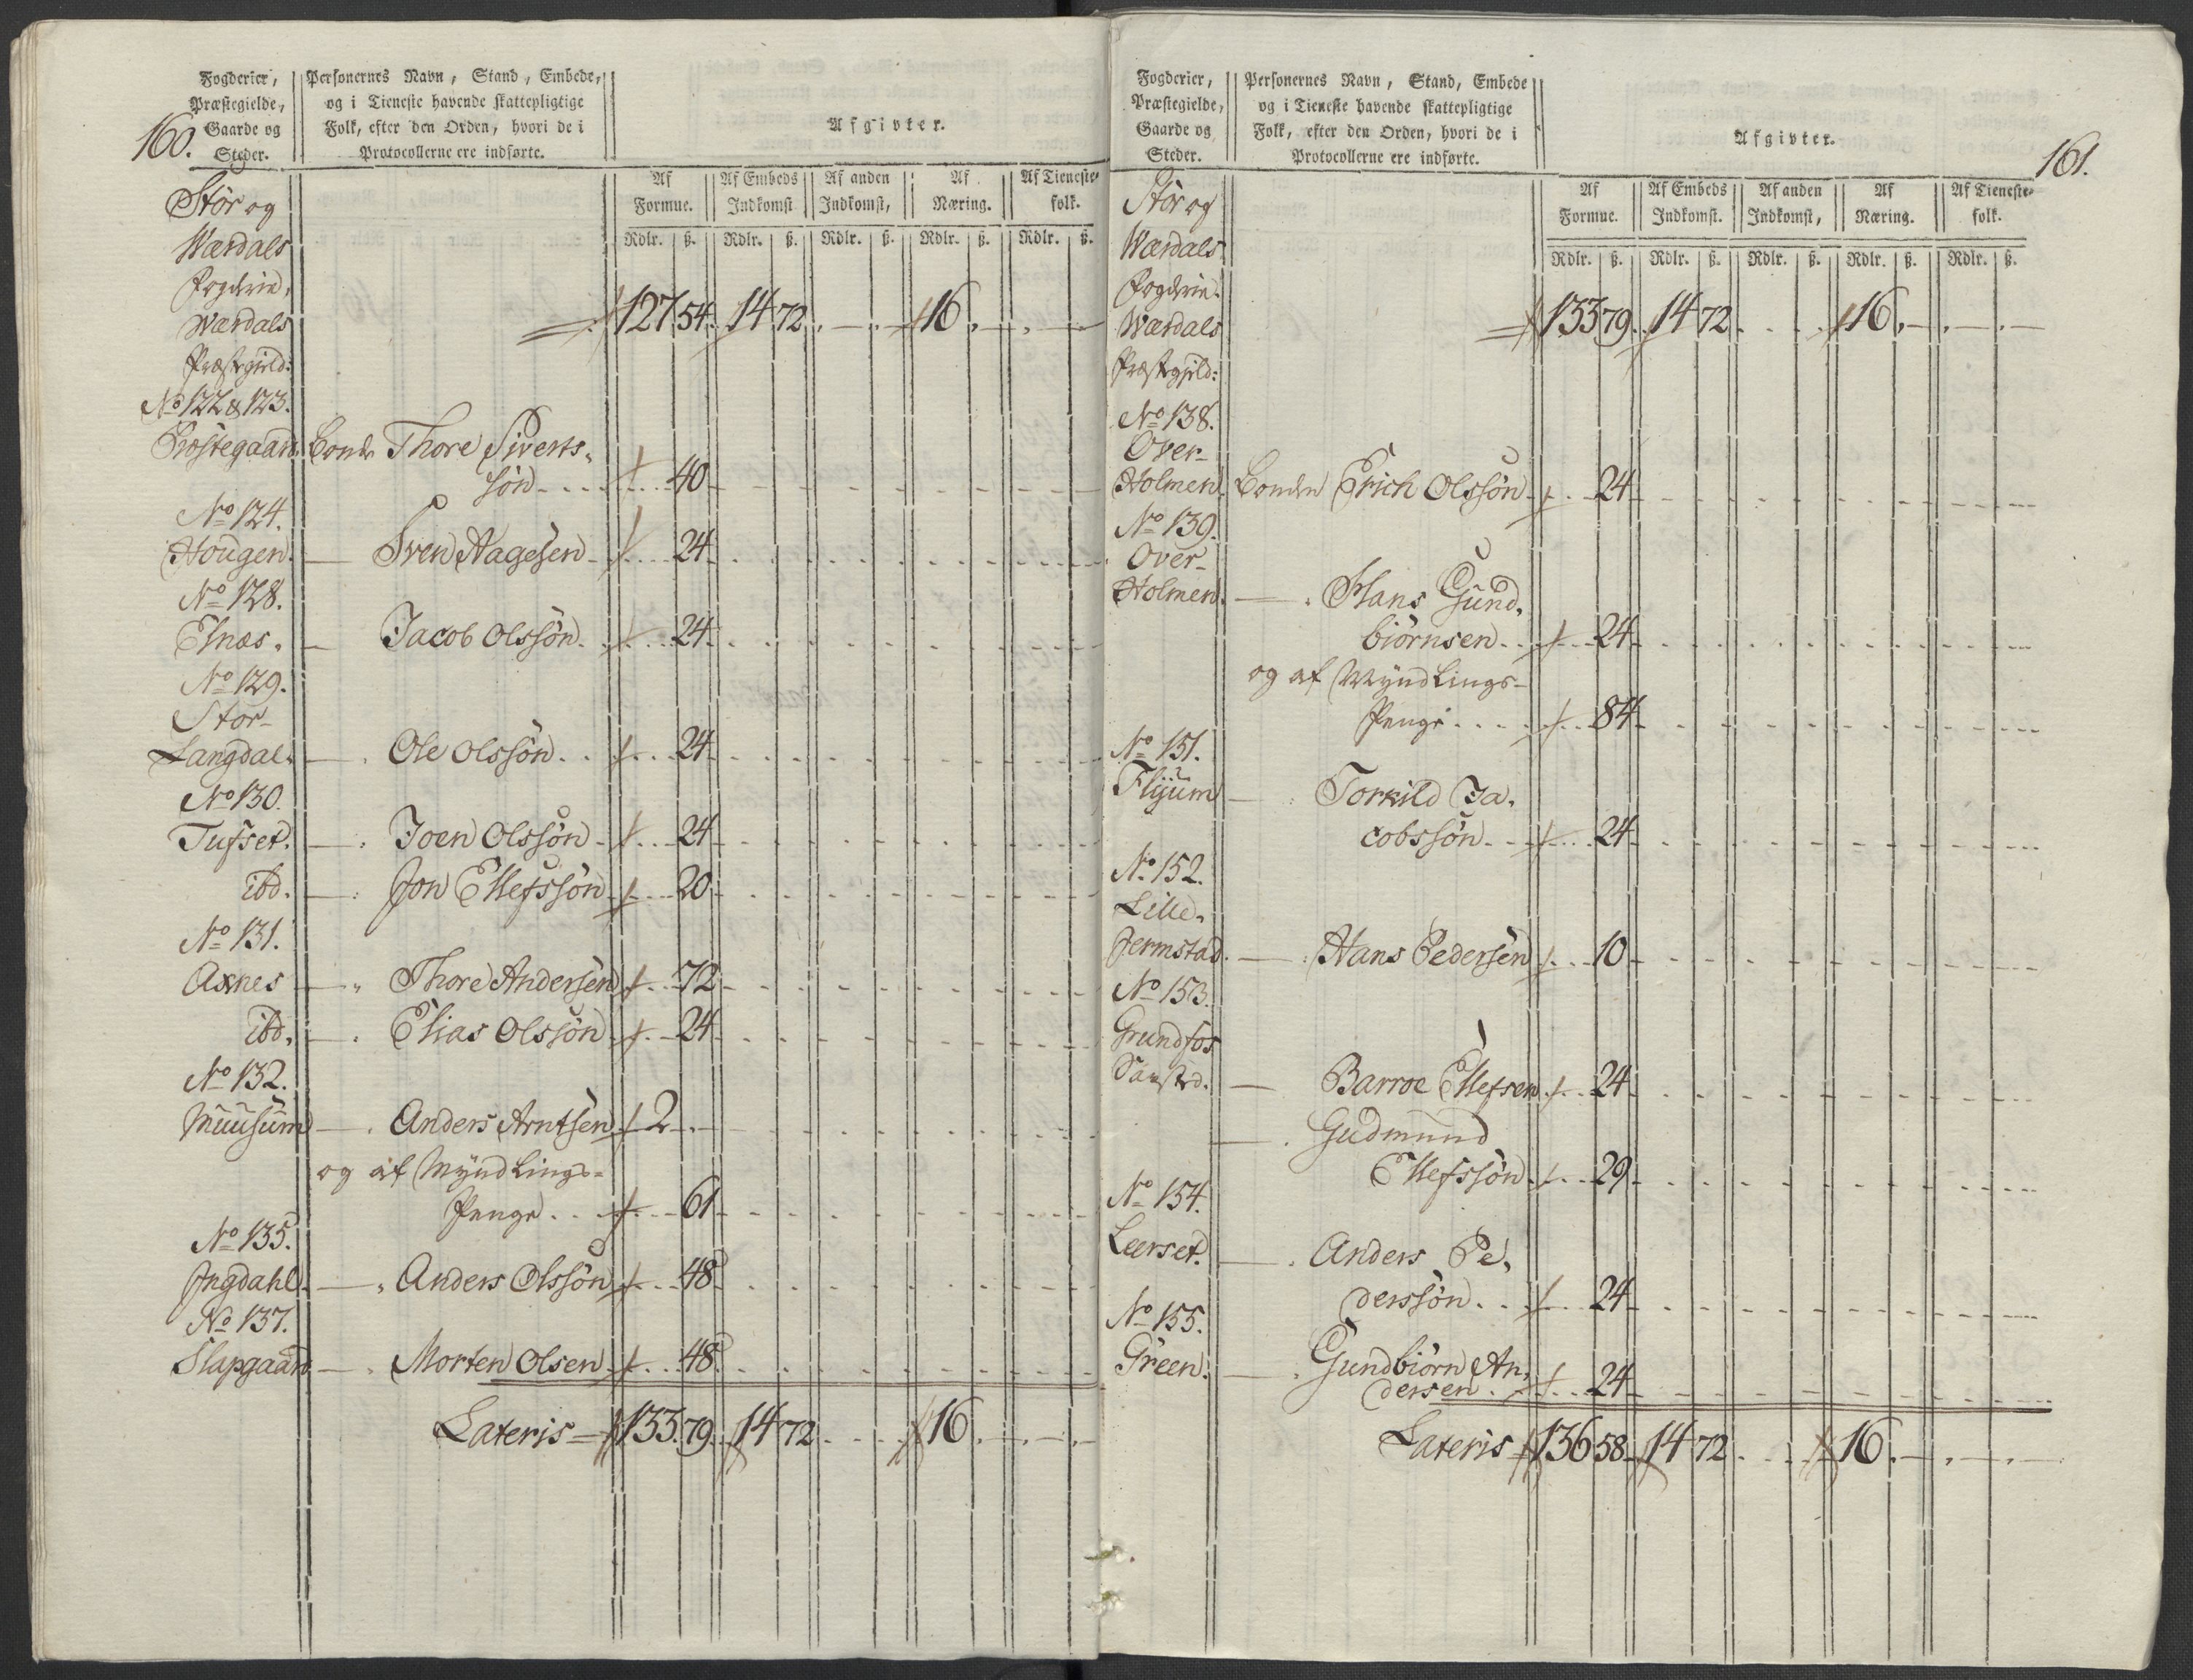 160.
Fogderier,
Præstegielde,
Gaarde og
Steder.
Personernes Navn, Stand, Embede,
og i Tieneste havende skattepligtige
Folk, efter den Orden, hvori de i
Protocollerne ere indførte.
Afgivter.
Af Formue. Af Embeds Indkomst Af anden Indkomst, Af Næring. Af Tieneste-folk.
Rdlr. ß. Rdlr. ß. Rdlr. ß. Rdlr. ß. Rdlr. ß.
Stör og
Værdals
Fogderie,
Værdals
Præstegield:
127 54. 14 72. 16.
No 122 & 123.
Bonde Thore Siverts-
sön 40
No 124.
Hougen. — Sven Aagesen 24
No 128.
Elnæs. — Jacob Olssön 24
No 129.
Stor-
Langdal. — Ole Olssön 24
No 130.
Tufset. — Joen Olssön 24
ibd. — Jon Ellefssön 20
No 131.
Axnes — Thore Andersen 72
ibd. — Elias Olssön 24
No 132.
Muusum — Anders Arntsen 2
og af Myndlings-
Penge 61
No 135.
Ingdahl. — Anders Olssön 48
No 137.
Slapgaard — Morten Olsen 48
Lateris 133. 79. 14 72 16
161.
Fogderier,
Præstegielde,
Gaarde og
Steder.
Personernes Navn, Stand, Embede
og i Tieneste havende skattepligtige
Folk, efter den Orden, hvori de i
Protocollerne ere indførte.
Afgivter.
Af Formue. Af Embeds Indkomst. Af anden Indkomst, Af Næring. Af Tieneste-folk.
Rdlr. ß. Rdlr. ß. Rdlr. ß. Rdlr. ß. Rdlr. ß.
Stör og
Værdals
Fogderie.
Værdals
Præstegield:
133 79. 14 72. 16.
No 138.
Over-
Holmen. Bonden Erich Olssön 24
No 139.
Over-
Holmen. — Hans Gund-
biörnsen 24
og af Myndlings-
Penge 84
No 151.
Flyum — Torkild Ja-
cobssön 24
No 152.
Lille-
Jermstad. — Hans Pedersen 10
No 153.
Grundfos
— Barroe Ellefsen 24
— Gudmund
Ellefssön 29
No 154.
Leerset. — Anders Pe-
derssön 24
No 155.
Green. — Gundbiörn An-
dersen 24
Lateris 136 58 14 72 16